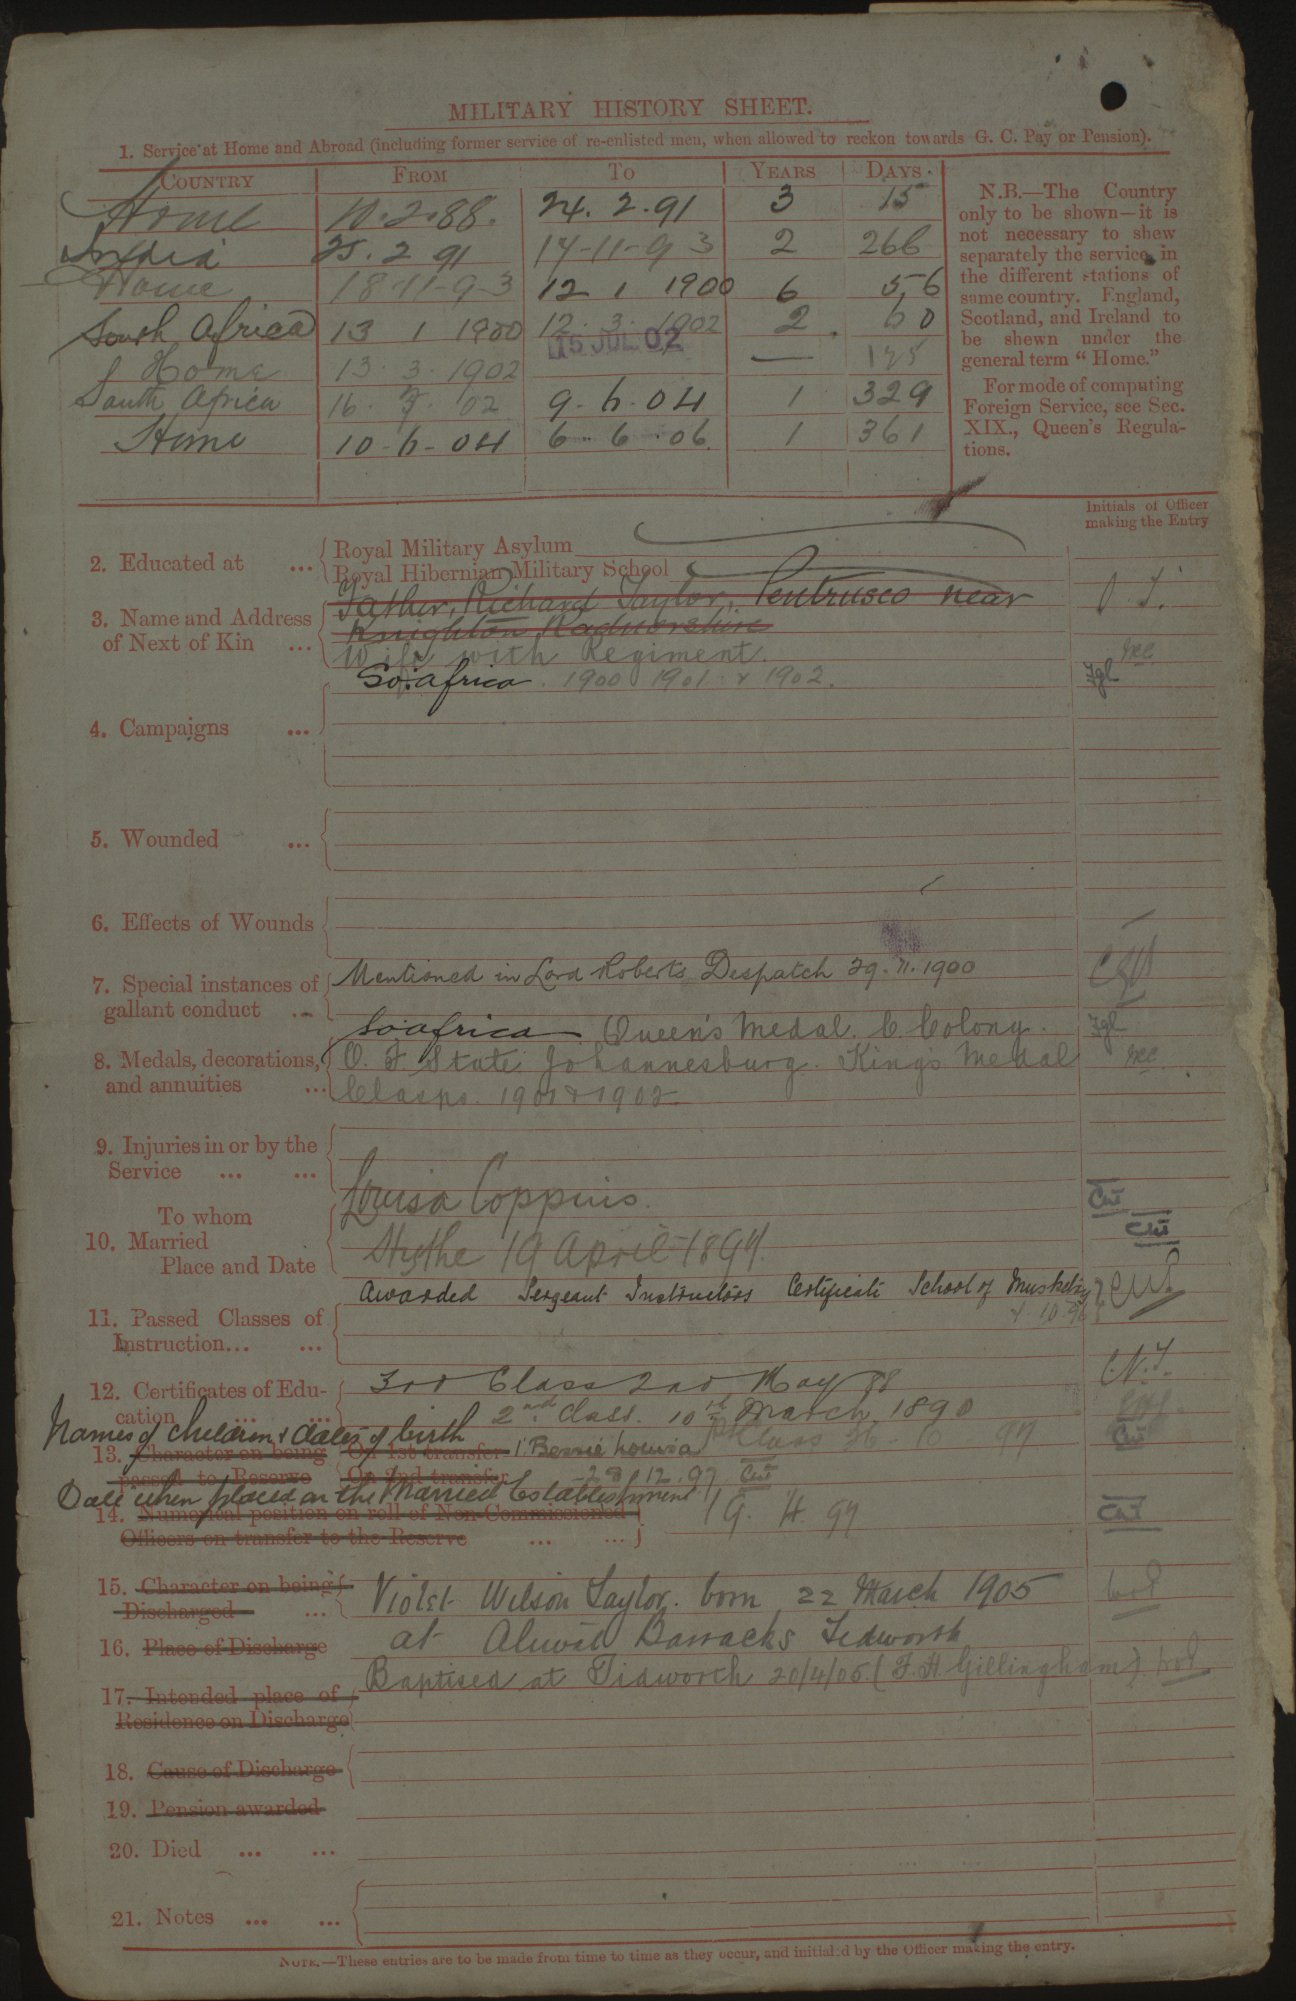 MILITARY HISTORY SHEET.
1. Service at Home and Abroad (including former service of re-enlisted men, when allowed to reckon towards G. C. Pay or Pension).
COUNTRY FROM TO YEARS DAYS.
Home 10.2.88. 24.2.91 3 15
India 25.2 91 17-11-93 2 266
Home 18-11-93 12 1 1900 6 56
South Africa 13 1 1900 12.3.1902 2 60
15 JUL 02
Home 13.3.1902 — 125
South Africa 16.7.02 9-6-04 1 329
Home 10-6-04 6.6.06. 1 361
N.B.—The Country
only to be shown—it is
not necessary to shew
separately the service in
the different stations of
same country. England,
Scotland, and Ireland to
be shewn under the
general term "Home."
For mode of computing
Foreign Service, see Sec.
XIX., Queen's Regula-
tions.
Initials of Officer
making the Entry
2. Educated at ... Royal Military Asylum
Royal Hibernian Military School
3. Name and Address
of Next of Kin ...
Father, Richard Taylor, Pentrusco near
Knighton Radnorshire
Wife with Regiment.
4. Campaigns ...
So. Africa. 1900 1901 & 1902.
5. Wounded ...
6. Effects of Wounds
7. Special instances of
gallant conduct ...
Mentioned in Lord Roberts Despatch 29.11.1900
8. Medals, decorations,
and annuities ...
So. Africa — Queen's Medal. C. Colony.
O. F State Johannesburg. King's Medal
Clasps. 1901 & 1902
9. Injuries in or by the
Service ... ...
10. Married
To whom
Place and Date
Louisa Coppins.
Hythe 19 April 1897.
11. Passed Classes of
Instruction... ...
Awarded Sergeant Instructors Certificate School of Musketry
10.96
12. Certificates of Edu-
cation ... ...
3rd Class 2nd May 88
2nd Class. 10th March. 1890
1st Class 26 10 97
Names of children & dates of birth
13. Character on being
passed to Reserve
On 1st transfer
On 2nd transfer
1 Bessie Louisa
28.12.97
Date when placed on the Married Establishment
19.4.97
14. Numerical position on roll of Non-Commissioned
Officers on transfer to the Reserve ... ...
15. Character on being
Discharged ...
Violet Wilson Taylor. born 22 March 1905
16. Place of Discharge
at Aliwal Barracks Tedworth
Baptised at Tidworth 20/4/05 (F. H Gillingham)
17. Intended place of
Residence on Discharge
18. Cause of Discharge
19. Pension awarded
20. Died ... ...
21. Notes ... ...
NOTE.—These entries are to be made from time to time as they occur, and initialed by the Officer making the entry.